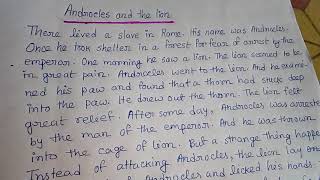 Androcles and the lion
There lived a slave in Rome. His name was Androcles.
Once he took shelter in a forest for fear of arrest by the
emperor. One morning he saw a lion. The lion seemed to be
in great pain. Androceles went to the lion. And he exami-
ned his paw and found that a thorn had stuck deep
into the paw. He drew out the thorn. The lion felt
great relief. After some day, Androcles was arreste
by the man of the emperor. And he was thrown
into the cage of lion. But a strange thing happe
Instead of attacking Androcles, the lion lay
of Androcles and licked his hands.